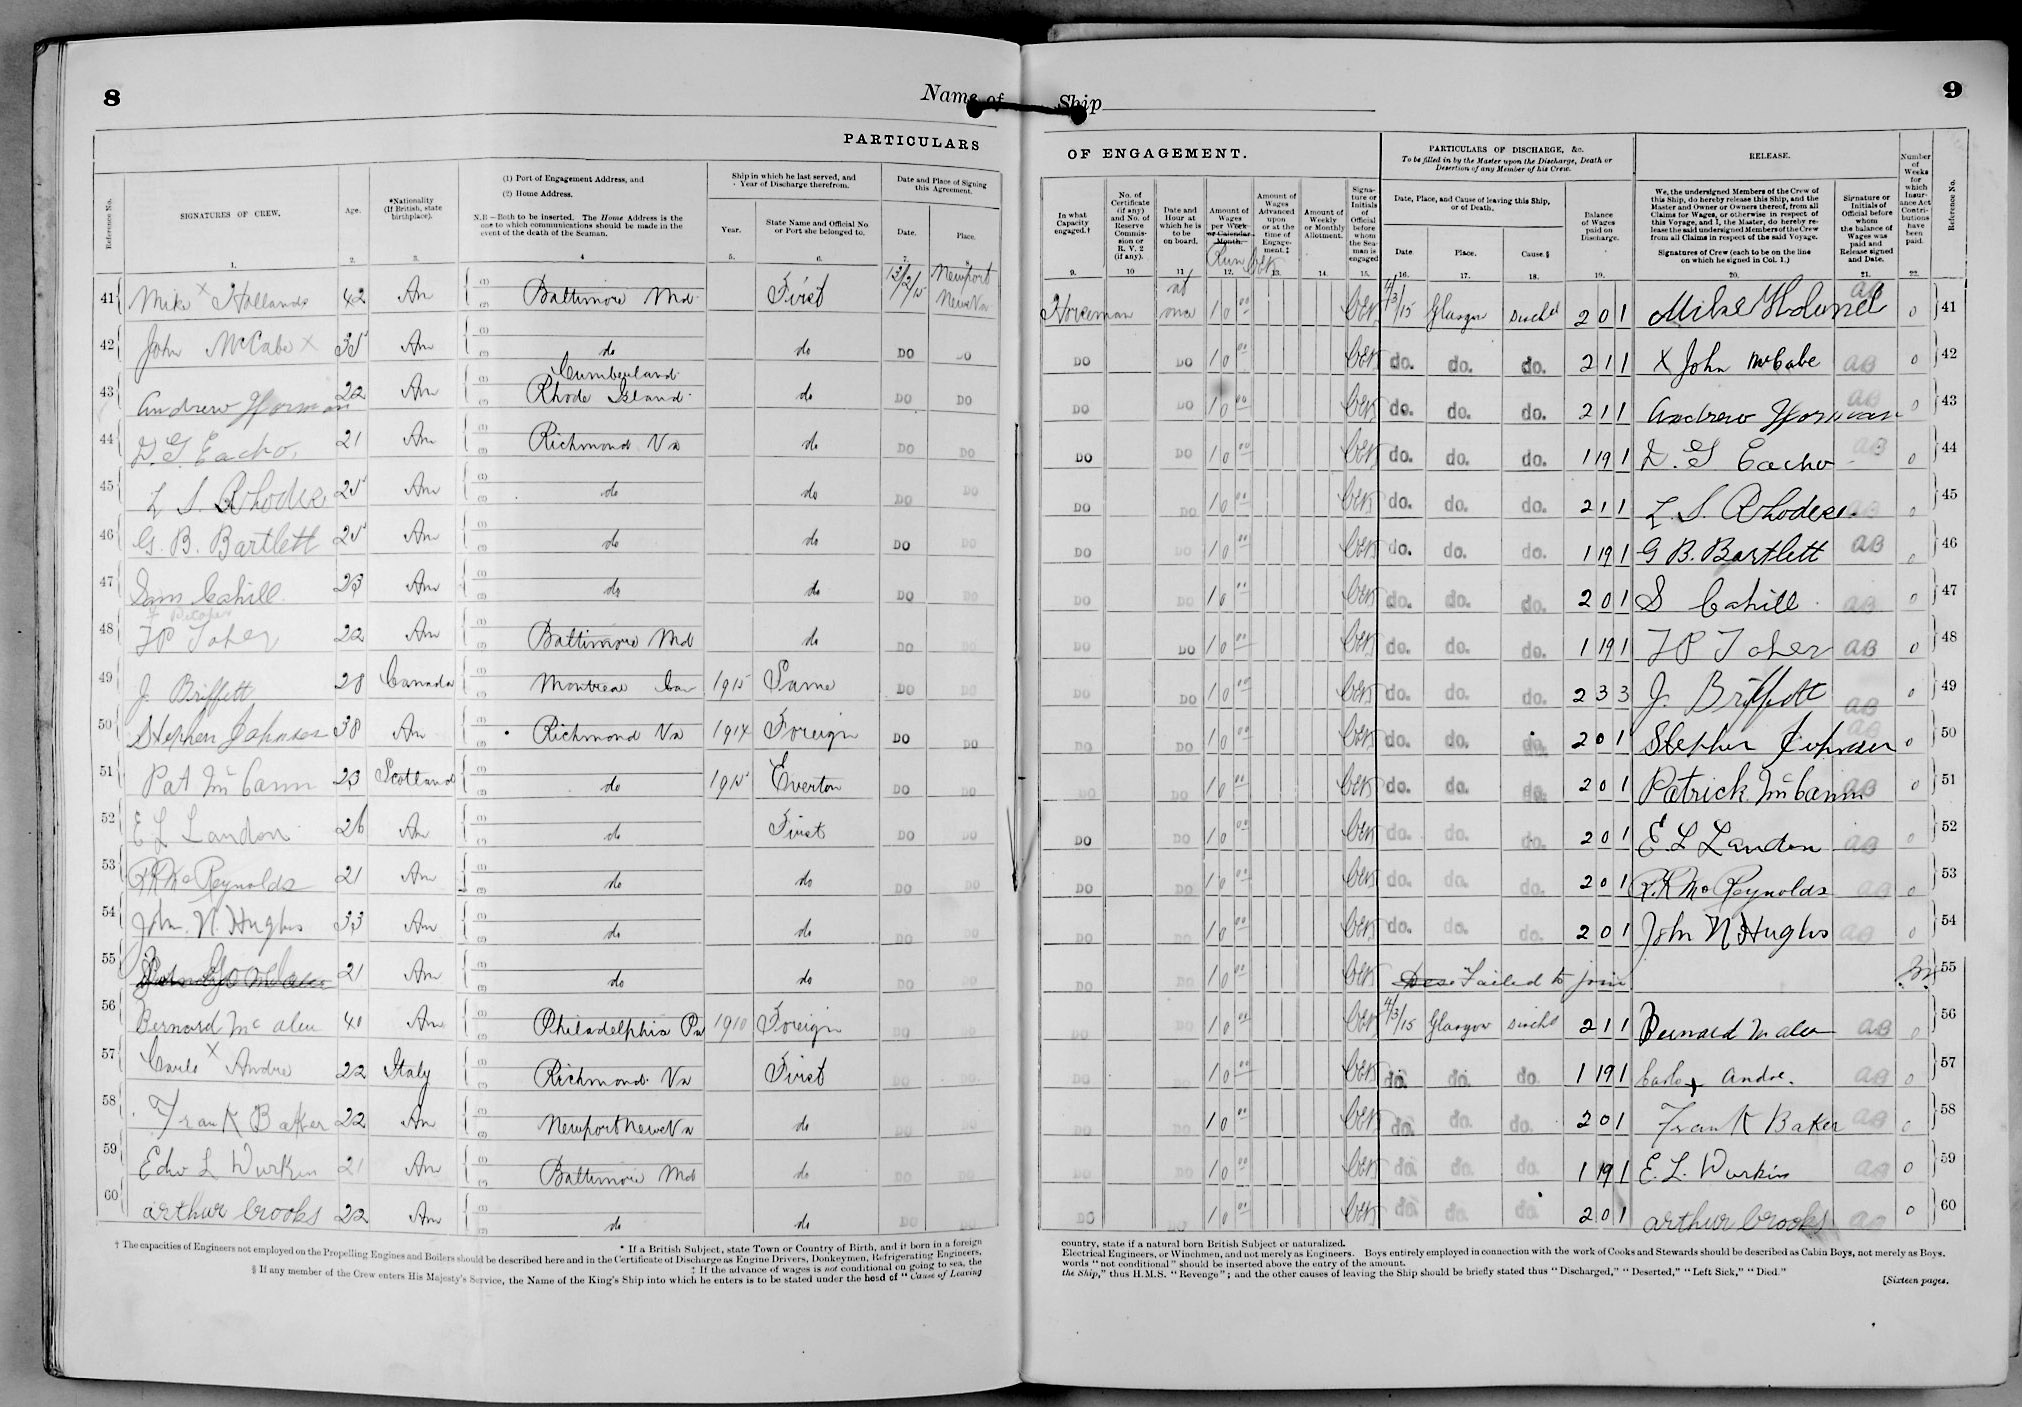 8
Name of Ship
9
PARTICULARS
OF ENGAGEMENT.
Reference No.
SIGNATURES OF CREW.
Age.
*Nationality (If British, state birthplace).
(1) Port of Engagement Address, and
(2) Home Address.
N.B—Both to be inserted. The Home Address is the one to which communications should be made in the event of the death of the Seaman.
Ship in which he last served, and Year of Discharge therefrom.
Year.
State Name and Official No or Port she belonged to.
Date and Place of Signing this Agreement.
Date.
Place.
In what Capacity engaged.†
No. of Certificate (if any) and No. of Reserve Commission or R. V. 2 (if any).
Date and Hour at which he is to be on board.
Amount of Wages per Week or Calendar Month.
Run
Amount of Wages Advanced upon or at the time of Engagement.‡
Amount of Weekly or Monthly Allotment.
Signature or Initials of Official before whom the Seaman is engaged
PARTICULARS OF DISCHARGE, &c.
To be filled in by the Master upon the Discharge, Death or Desertion of any Member of his Crew.
Date, Place, and Cause of leaving this Ship, or of Death.
Date
Place.
Cause.§
BALANCE OF WAGES paid on Discharge.
RELEASE.
We, the undersigned Members of the Crew of this Ship, do hereby release this Ship, and the Master and Owner or Owners thereof, from all Claims for Wages, or otherwise in respect of this Voyage, and I, the Master, do hereby release the said undersigned Members of the Crew from all Claims in respect of the said Voyage.
Signatures of Crew (each to be on the line on which he signed in Col. 1.)
Signature or Initials of Official before whom the balance of Wages was paid and Release signed and Date.
Number of Weeks for which Insurance Act Contributions have been paid.
Reference No.
1. 2. 3. 4 5. 6. 7. 9. 10 11 12. 13. 14. 15. 16. 17. 18. 19. 20. 21. 22.
41 Mike x Hollands 42 Am Baltimore Md. First 13/2/15 Newport News Va Horseman at once 10 00 4/3/15 Glasgow Dischd 2 0 1 Mike Holland aB 0 41
42 John McCabe x 35 Am do do DO DO DO DO 10 00 do. do. do. 2 1 1 x John McCabe aB 0 42
43 Andrew Gorman 22 Am Cumberland Rhode Island. do DO DO DO DO 10 00 do. do. do. 2 1 1 Andrew Gorman aB 0 43
44 D. G. Eacho 21 Am Richmond Va do DO DO DO DO 10 00 do. do. do. 1 19 1 D. G Eacho aB 0 44
45 L S. Rhodes 25 Am do do DO DO DO DO 10 00 do. do. do. 2 1 1 L. S. Rhodes. aB 0 45
46 G. B. Bartlett 25 Am do do DO DO DO DO 10 00 do. do. do. 1 19 1 G B. Bartlett aB 0 46
47 Sam Cahill 23 Am do do DO DO DO DO 10 00 do. do. do. 2 0 1 S Cahill aB 0 47
48 F P Toher 22 Am Baltimore Md do DO DO DO DO 10 00 do. do. do. 1 19 1 F P Toher aB 0 48
49 J. Briffett 28 Canada Montreal Can 1915 Same DO DO DO DO 10 00 do. do. do. 2 3 3 J. Briffett aB 0 49
50 Stephen Johnson 38 Am Richmond Va 1914 Foreign DO DO DO DO 10 00 do. do. do. 2 0 1 Stephen Johnson aB 0 50
51 Pat McCann 23 Scotland do 1915 Everton DO DO DO DO 10 00 do. do. do. 2 0 1 Patrick McCann aB 0 51
52 E L Landon 26 Am do First DO DO DO DO 10 00 do. do. do. 2 0 1 E L Landon aB 0 52
53 R.R. McReynolds 21 Am do do DO DO DO DO 10 00 do. do. do. 2 0 1 R.R McReynolds aB 0 53
54 John. N. Hughs 33 Am do do DO DO DO DO 10 00 do. do. do. 2 0 1 John N Hughs aB 0 54
55 21 Am do do DO DO DO DO 10 00 Failed to join 55
56 Bernard Mc aleu 40 Am Philadelphia Pa 1910 Foreign DO DO DO DO 10 00 4/3/15 Glasgow Dischd 2 1 1 Bernard M aleu aB 0 56
57 Carlo x Andre 22 Italy Richmond. Va First DO DO DO DO 10 00 do. do. do. 1 19 1 Carlo x Andre. aB 0 57
58 Frank Baker 22 Am Newport News Va do DO DO DO DO 10 00 do. do. do. 2 0 1 Frank Baker aB 0 58
59 Edw L Durkin 21 Am Baltimore Md do DO DO DO DO 10 00 do. do. do. 1 19 1 E. L. Durkin aB 0 59
60 arthur Crooks 22 Am do do DO DO DO DO 10 00 do. do. do. 2 0 1 arthur Crooks aB 0 60
* If a British Subject, state Town or Country of Birth, and if born in a foreign country, state if a natural born British Subject or naturalized.
† The capacities of Engineers not employed on the Propelling Engines and Boilers should be described here and in the Certificate of Discharge as Engine Drivers, Donkeymen, Refrigerating Engineers, Electrical Engineers, or Winchmen, and not merely as Engineers. Boys entirely employed in connection with the work of Cooks and Stewards should be described as Cabin Boys, not merely as Boys.
‡ If the advance of wages is not conditional on going to sea, the words "not conditional" should be inserted above the entry of the amount.
§ If any member of the Crew enters His Majesty's Service, the Name of the King's Ship into which he enters is to be stated under the head of "Cause of Leaving the Ship," thus H.M.S. "Revenge"; and the other causes of leaving the Ship should be briefly stated thus "Discharged," "Deserted," "Left Sick," "Died."
[Sixteen pages.